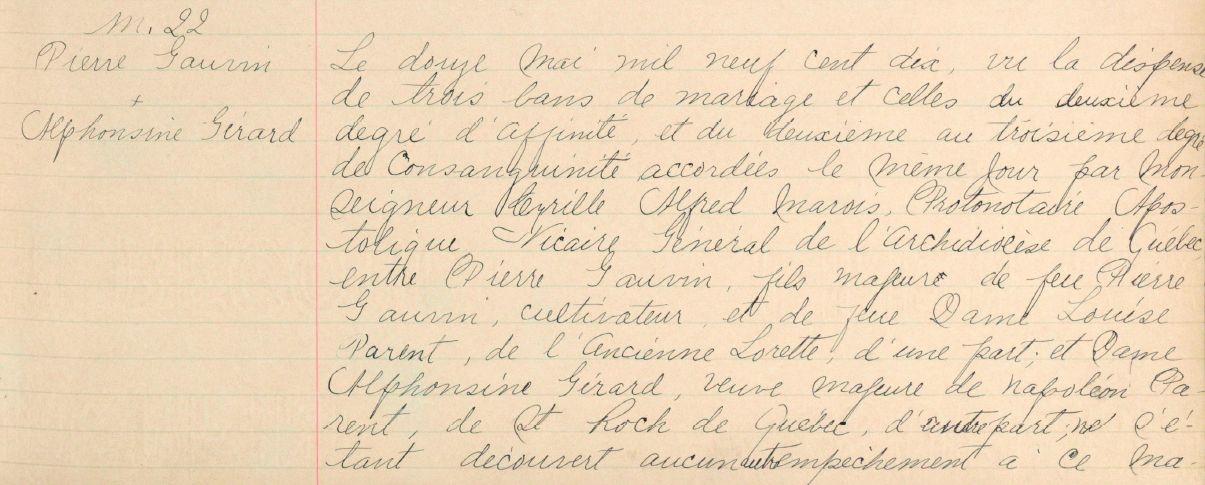 M. 22
Pierre Gauvin
+
Alphonsine Gérard
Le douze Mai mil neuf cent dix, vu la dispense
de trois bans de mariage et celles du deuxième
degré d'affinité, et du deuxième au troisième degré
de Consanguinité accordées le même jour par Mon-
seigneur Cyrille Alfred Marois, Protonotaire Apos-
tolique, Vicaire Général de l'Archidiocèse de Québec,
entre Pierre Gauvin, fils majeur de feu Pierre
Gauvin, cultivateur, et de feue Dame Louise
Parent, de l'Ancienne Lorette, d'une part; et Dame
Alphonsine Gérard, veuve majeure de Napoléon Pa-
rent, de St Roch de Québec, d'autre part; ne s'é-
tant découvert aucun autre empêchement à ce ma-